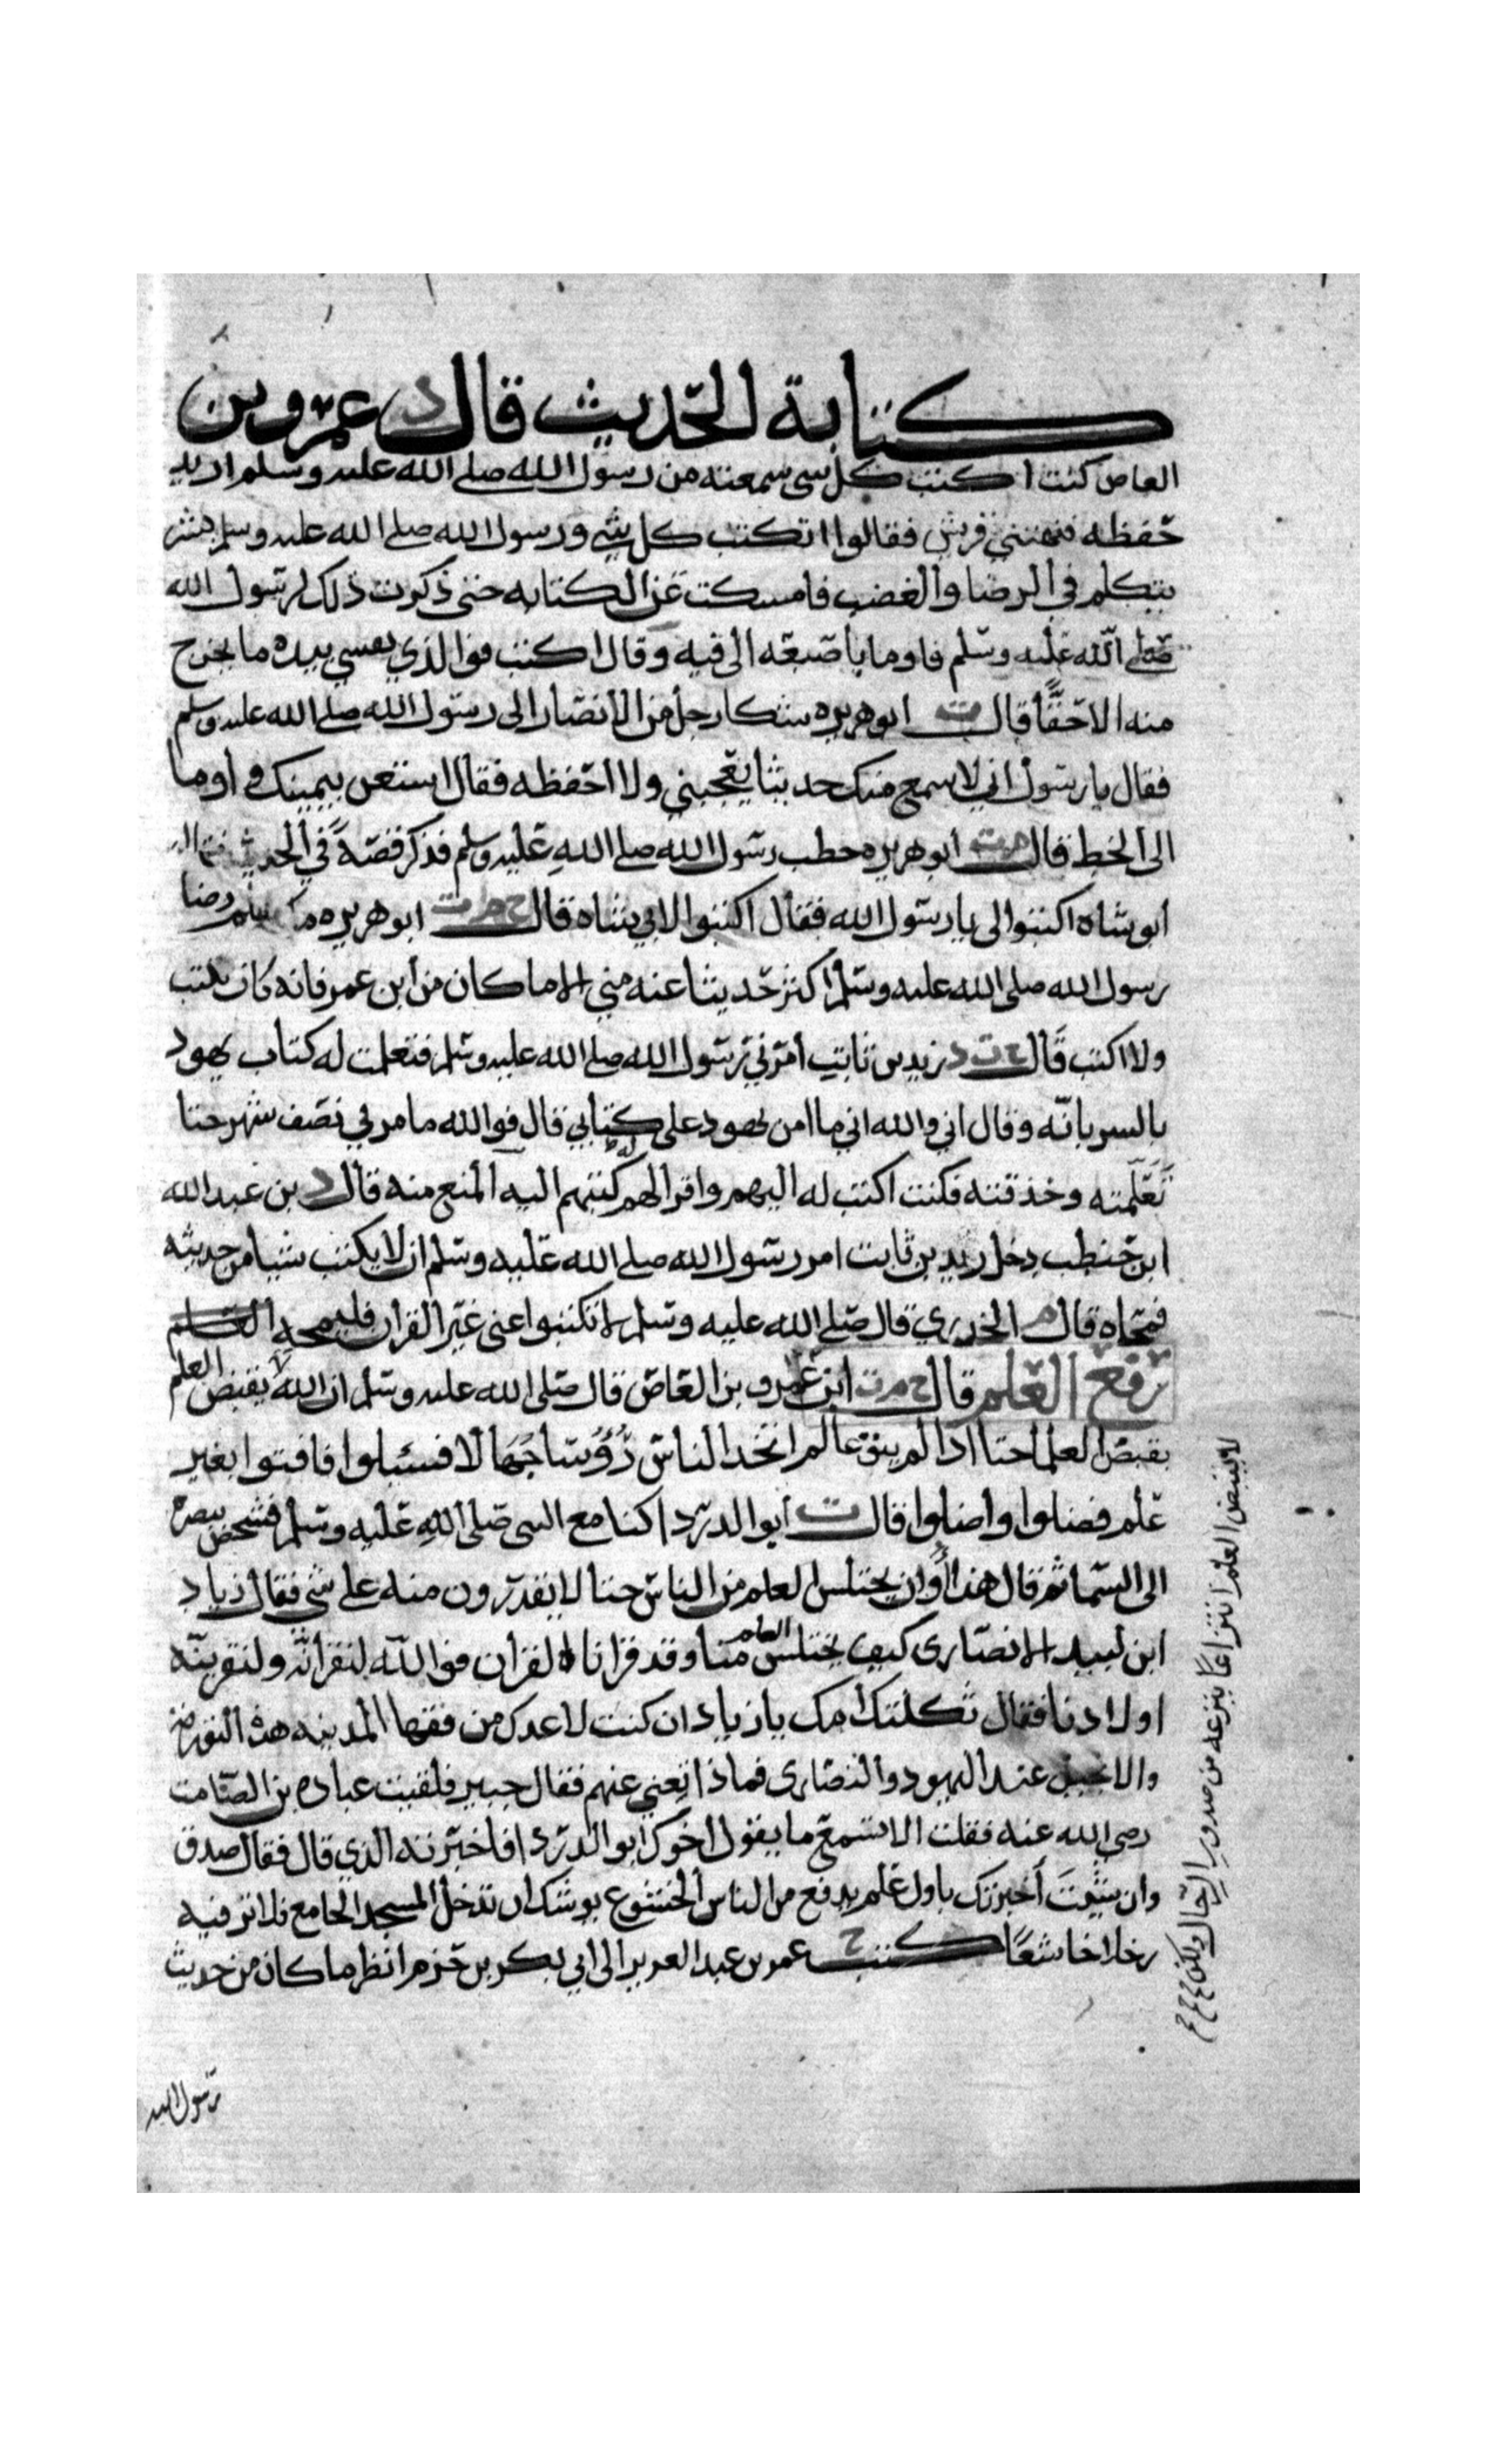 كتابة الحديث قال د عمرو بن
العاص كنت اكتب كل شى سمعته من رسول الله صلى الله عليه وسلم اريد
حفظه فنهتني قريش فقالوا اتكتب كل شي ورسول الله صلى الله عليه وسلم بشر
يتكلم في الرضا والغضب فامسكت عن الكتابه حتى ذكرت ذلك لرسول الله
صلى الله عليه وسلم فاوما باصبعه الى فيه وقال اكتب فوالذي نفسي بيده ما يخرج
منه الا حقا قال ت ابو هريره شكا رجل من الانصار الى رسول الله صلى الله عليه وسلم
فقال يا رسول اني لاسمع منك حديثا يعجبني ولا احفظه فقال استعن بيمينك واوما
الى الخط قال ابو هريره خطب رسول الله صلى الله عليه وسلم فذكر قصة في الحديث فقال
ابو شاه اكتبوا لى يا رسول الله فقال اكتبوا لابي شاه قال خ م ت ابو هريره ما
رسول الله صلى الله عليه وسلم اكثر حديثا عنه مني الا ما كان من ابن عمر فانه كان يكتب
ولا اكتب قال خ ت د زيد بن ثابت امرني رسول الله صلى الله عليه وسلم فتعلمت له كتاب يهود
بالسريانيه وقال اني والله اني ما امن يهود على كتابي قال فوالله ما مر لي نصف شهر حتا
تعلمته وحذقته فكنت اكتب له اليهم واقرا لهم كتبهم اليه المنع منه قال د بن عبد الله
ابن حنطب دخل زيد بن ثابت امر رسول الله صلى الله عليه وسلم ان لا يكتب شيا من حديثه
فمحاه قال م الخدري قال صلى الله عليه وسلم لا تكتبوا عنى غير القران فليمحه العلم
رفع العلم قال خ م ت ابن عمرو بن العاص قال صلى الله عليه وسلم ان الله لا يقبض العلم
بقبض العلما حتا اذا لم يبق عالم اتخذ الناس رؤسا جهالا فسئلوا فافتوا بغير
علم فضلوا واضلوا قال ت ابو الدردا كنا مع النبى صلى الله عليه وسلم فشخص ببصره
الى السما ثم قال هذا أوان يختلس العلم من الناس حتا لا يقدرون منه على شي فقال زياد
ابن لبيد الانصارى كيف يختلس العلم منا وقد قرانا القران فوالله لنقرانه ولنقرينه
اولادنا فقال ثكلتك امك يا زياد ان كنت لاعدك من فقها المدينه هذه التوراة
والانجيل عند اليهود والنصارى فماذا تغني عنهم فقال جبير فلقيت عباده بن الصامت
رضي الله عنه فقلت الا تسمع ما يقول اخوك ابو الدردا فاخبرته الذي قال فقال صدق
وان شيت أخبرتك باول علم يرفع من الناس الخشوع يوشك ان تدخل المسجد الجامع فلا تر فيه
رجلا خاشعا كتب خ عمر بن عبد العزيز الى ابي بكر بن حزم انظر ما كان من حديث
رسول الله
لا يقبض العلم انتزاعا ينزعه من صدور الرجال ولكن